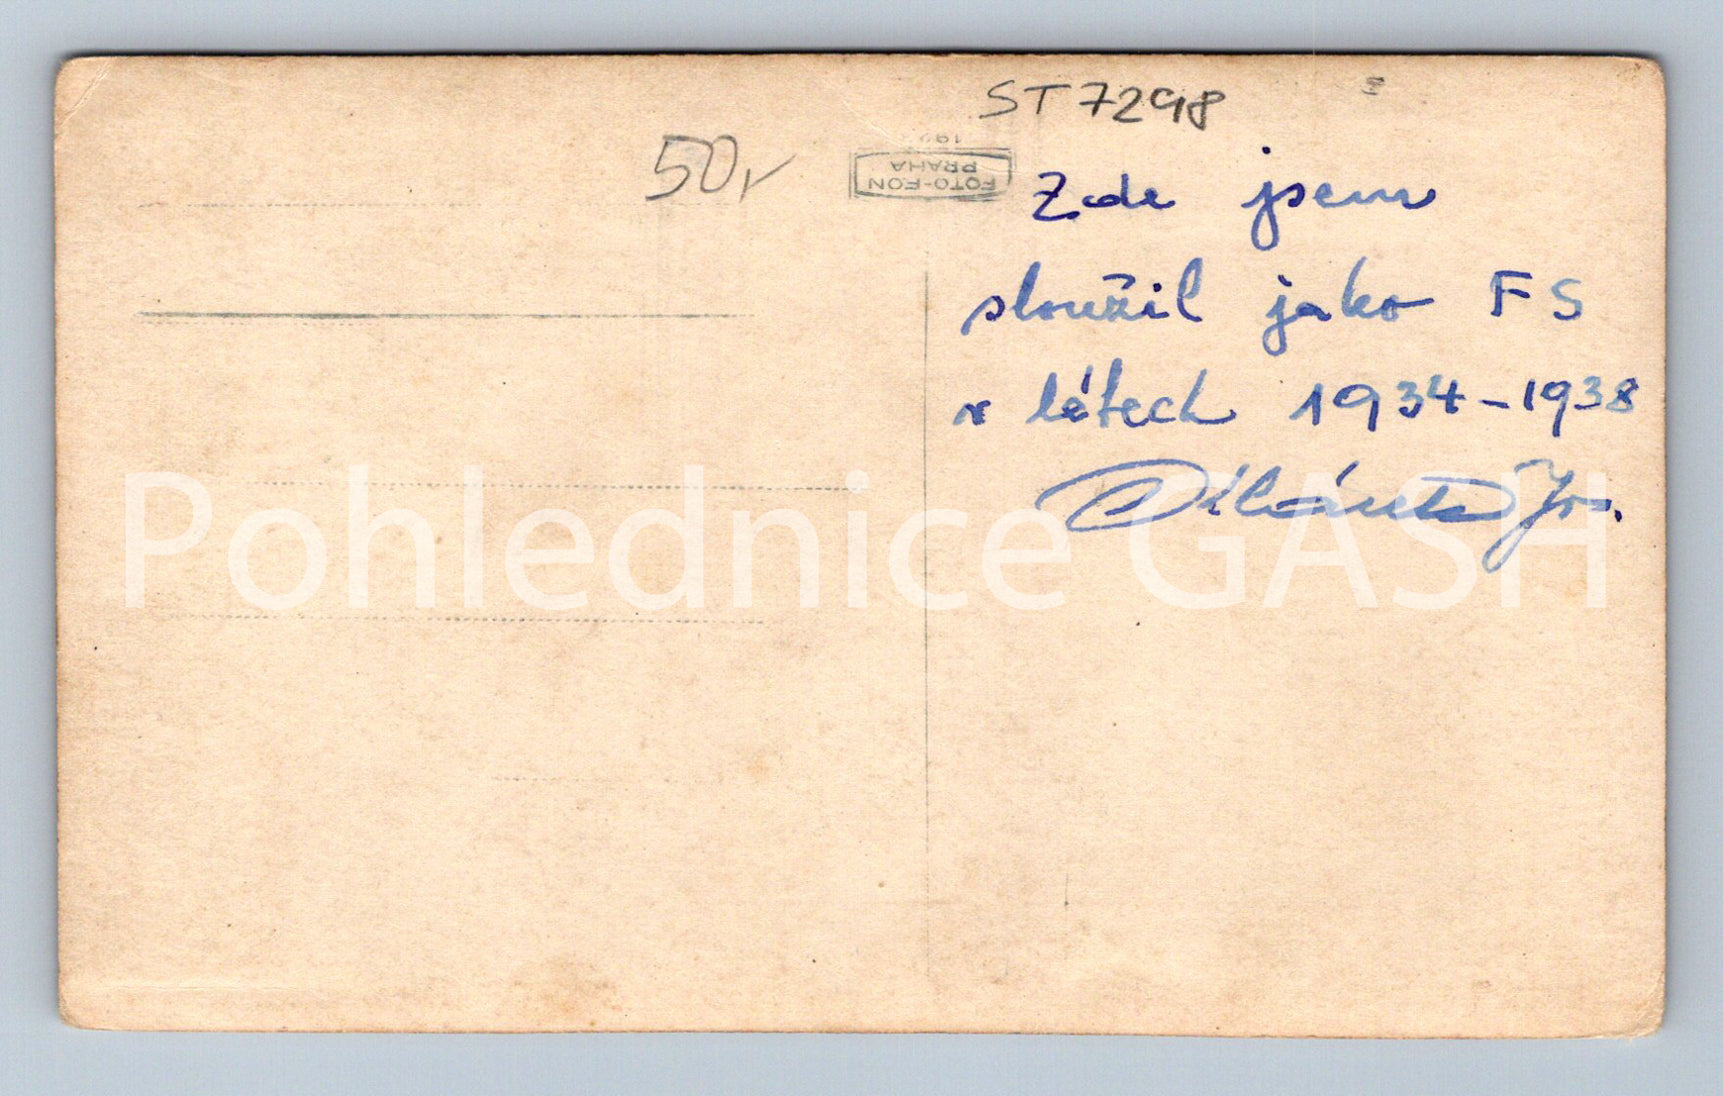 ST 7298
50,-
192
FOTO-FON
PRAHA
Zde jsem
sloužil jako FS
v létech 1934-1938
Jos.
Pohlednice GASH